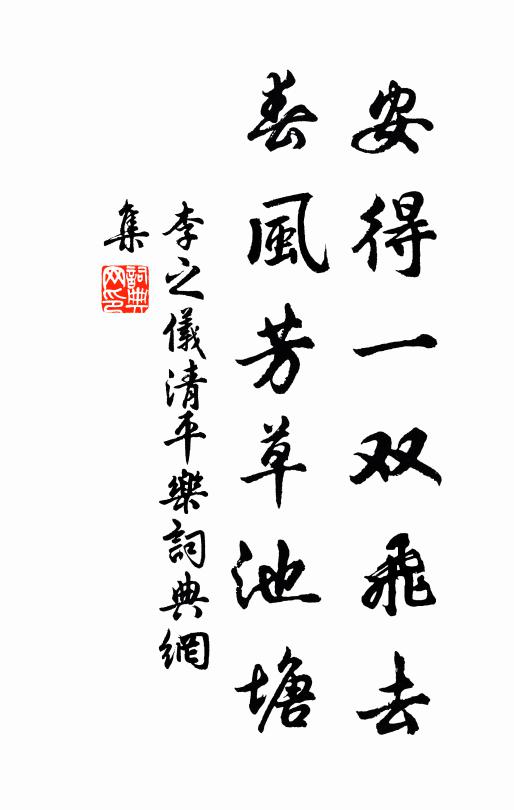 安得一双飛去
春風芳草池塘
李之儀清平樂詞典網
集
詞典
网印